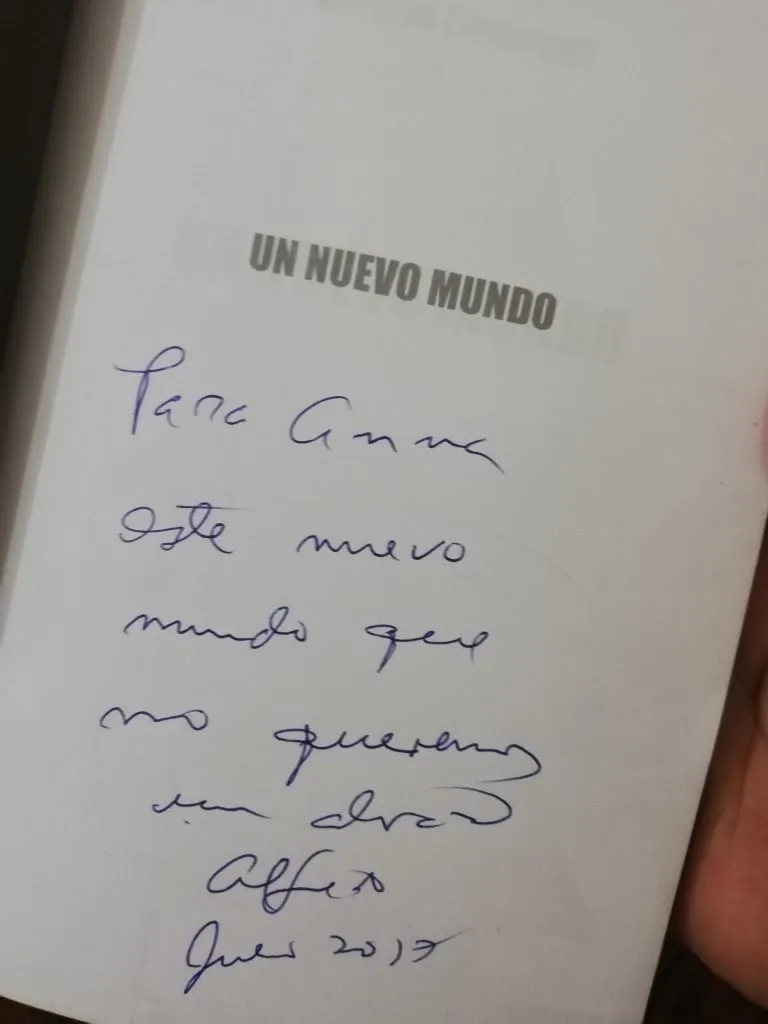 UN NUEVO MUNDO
Para Anna
este nuevo
mundo que
no queremos
un abrazo
Alfredo
2017